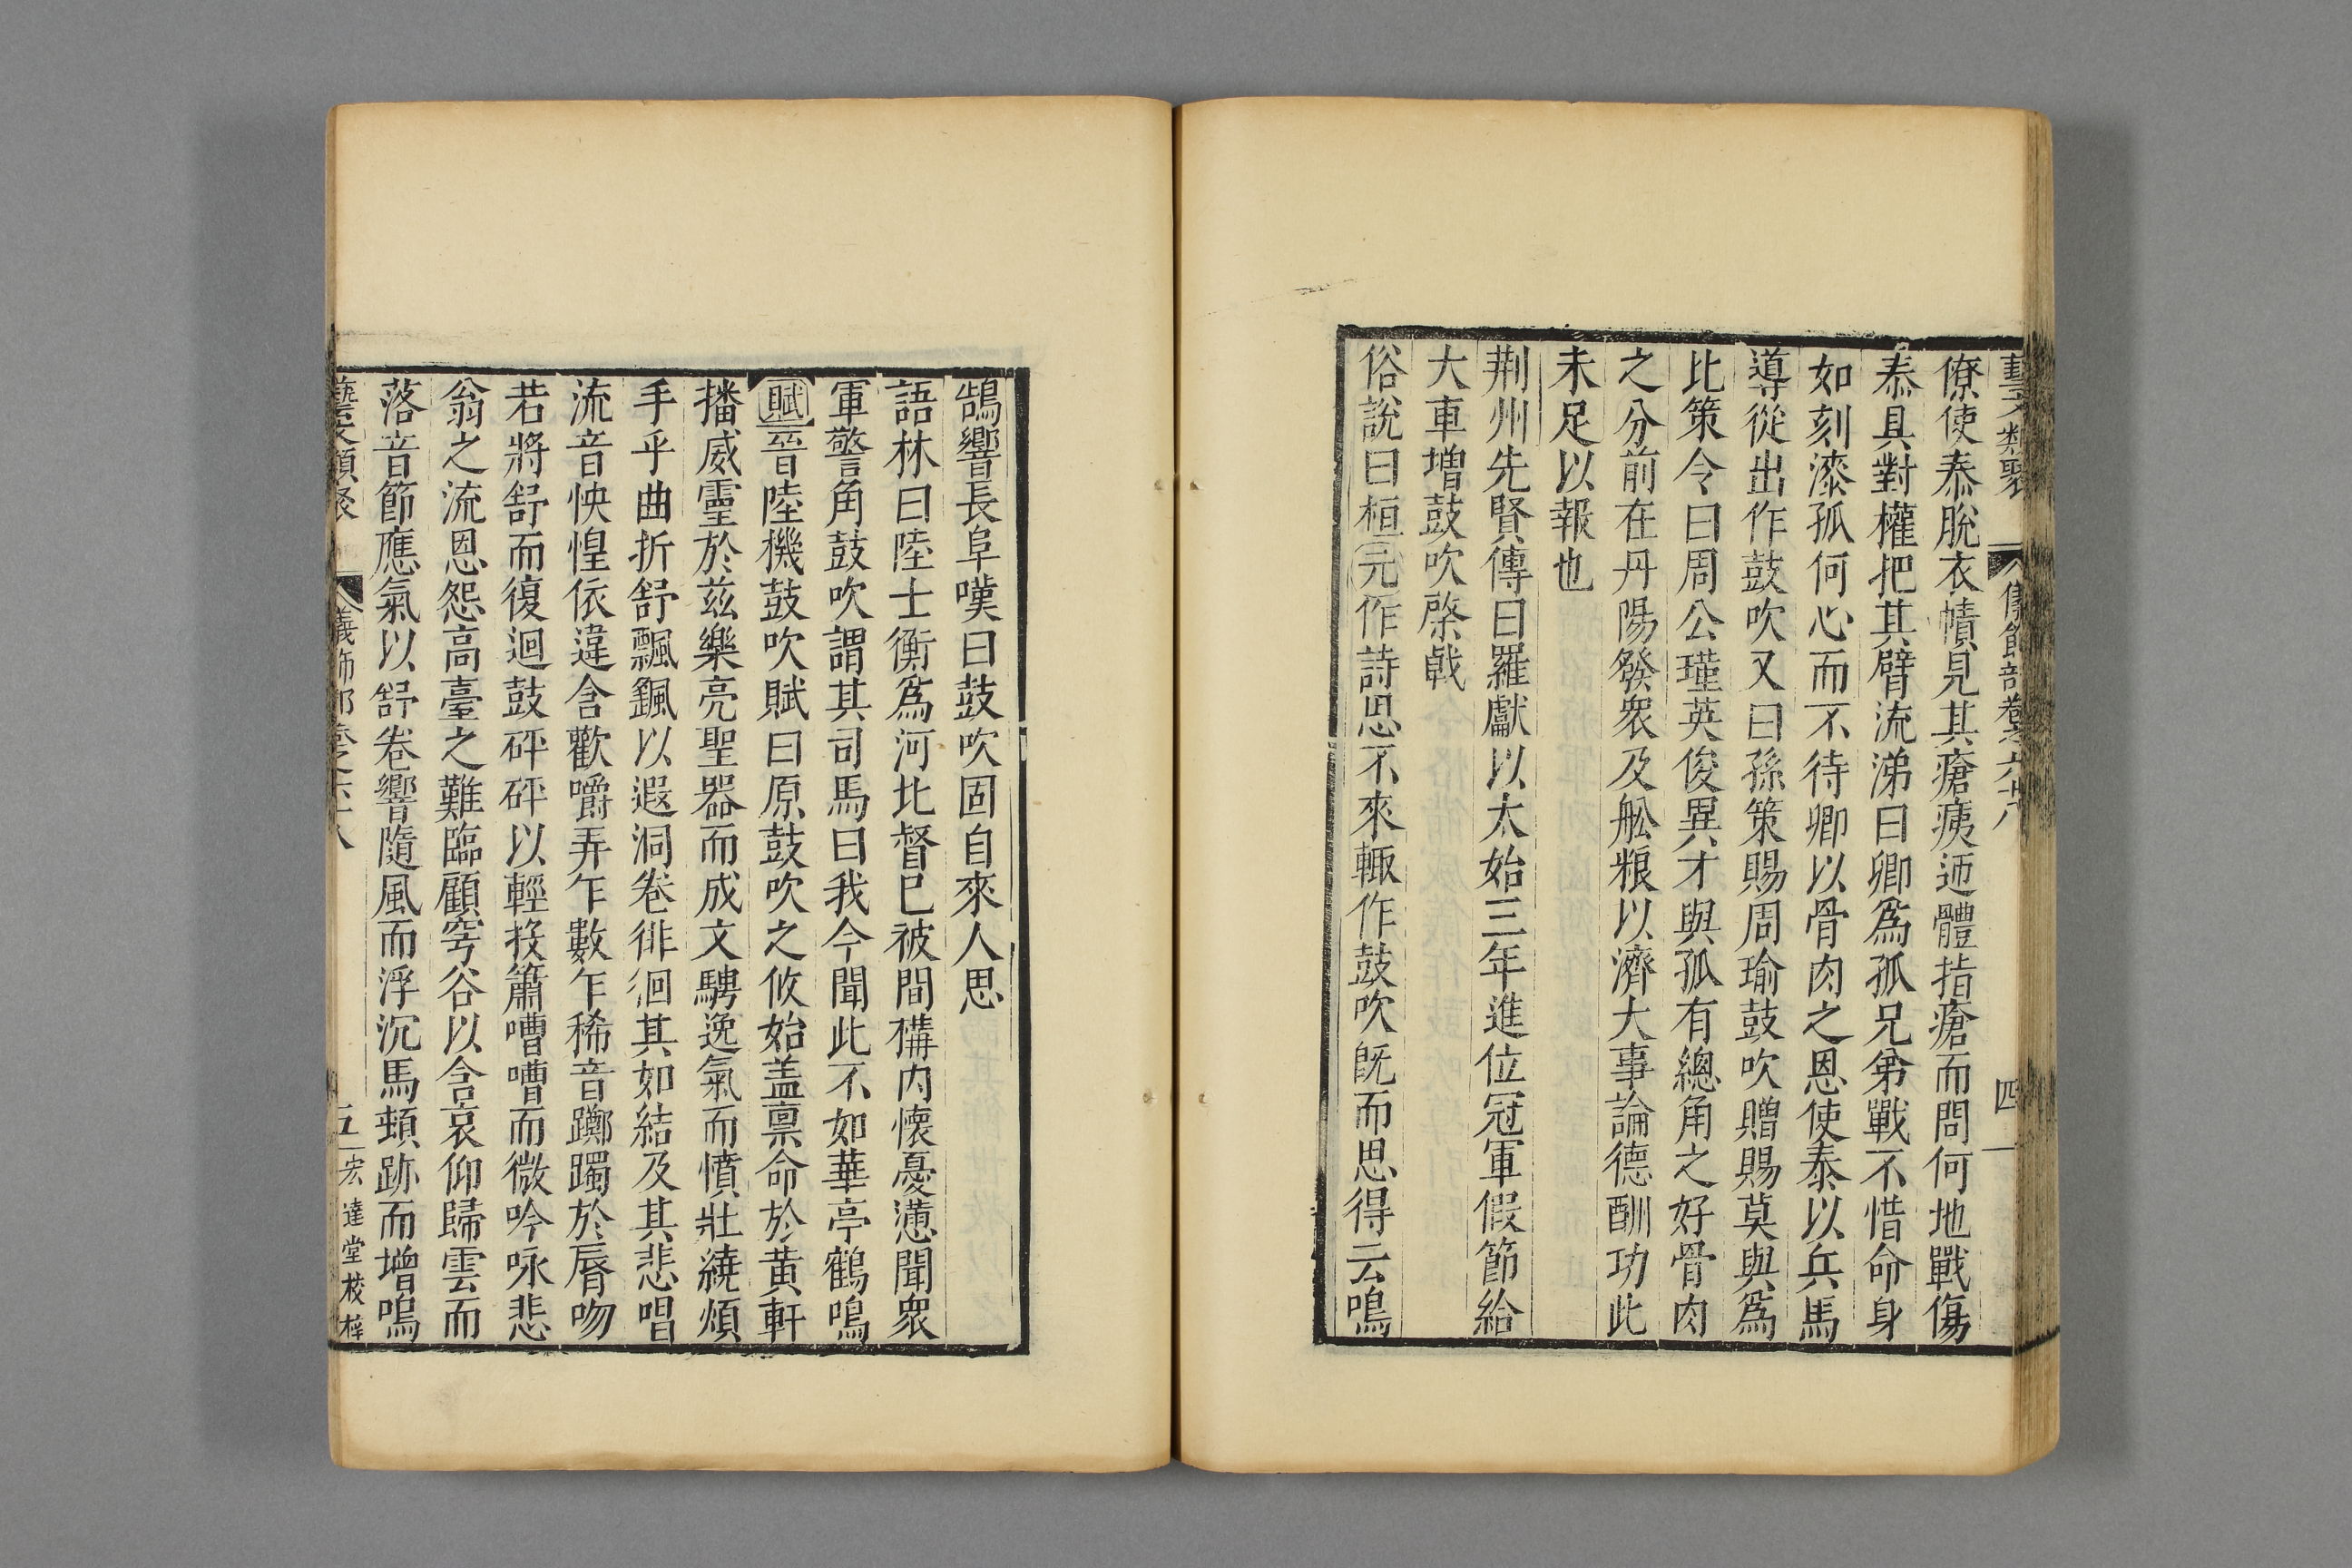 藝文類聚 儀飾部卷六十八 四
僚使泰脫衣幘見其瘡痍迊體指瘡而問何地戰傷
泰具對權把其臂流涕曰卿爲孤兄弟戰不惜命身
如刻漆孤何心而不待卿以骨肉之恩使泰以兵馬
導從出作鼓吹又曰孫策賜周瑜鼓吹贈賜莫與爲
比策令曰周公瑾英俊異才與孤有總角之好骨肉
之分前在丹陽發衆及舩粮以濟大事論德酬功此
未足以報也
荆州先賢傳曰羅獻以太始三年進位冠軍假節給
大車增鼓吹棨戟
俗說曰桓元作詩思不來輙作鼓吹旣而思得云鳴
鵠響長阜嘆曰鼓吹固自來人思
語林曰陸士衡爲河北督已被間構内懷憂懣聞衆
軍警角鼓吹謂其司馬曰我今聞此不如華亭鶴鳴
賦晉陸機鼓吹賦曰原鼓吹之攸始盖禀命於黄軒
播威靈於兹樂亮聖器而成文騁逸氣而憤壯繞煩
手乎曲折舒飄颻以遐洞卷徘徊其如結及其悲唱
流音怏惶依違含歡嚼弄乍數乍稀音躑躅於脣吻
若將舒而復迴鼓砰砰以輕投簫嘈嘈而微吟咏悲
翁之流恩怨高臺之難臨顧穹谷以含哀仰歸雲而
落音節應氣以舒卷響隨風而浮沉馬頓跡而增鳴
藝文類聚 儀飾部卷之六十八 五 宏達堂校梓